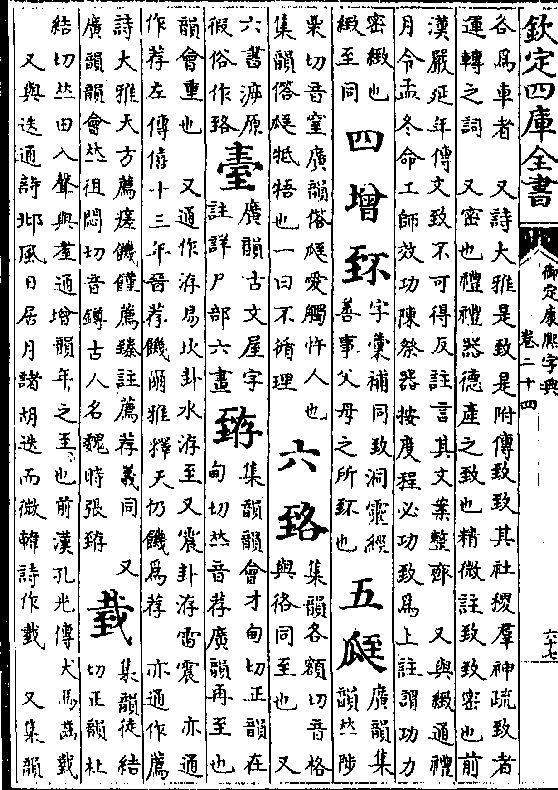 欽定四庫全書
御定康熙字典
卷二十四
六十七
各為車者 又詩大雅是致是附傳致致其社稷羣神疏致者
運轉之詞 又密也禮禮器德產之致也精微註致致密也前
漢嚴延年傳文致不可得反註言其文案整齊 又與緻通禮
月令孟冬命工師效功陳祭器按度程必功致為上註謂功力
密緻也
緻至同
四增 字彙補同致洞靈經
善事父母之所 也
五 廣韻集
韻𠀤陟
栗切音窒廣韻俗 愛觸忤人也
集韻俗 牴牾也一曰不循理
六 集韻各額切音格
與佫同至也 又
六書溯原
假俗作
臺 廣韻古文屋字
註詳尸部六畫
臶 集韻韻會才甸切正韻在
甸切𠀤音荐廣韻再至也
韻會重也 又通作洊易坎卦水洊至又震卦洊雷震 亦通
作荐左傳僖十三年晉荐饑爾雅釋天仍饑為荐 亦通作薦
詩大雅天方薦瘥饑饉薦臻註薦荐義同 又
廣韻韻會𠀤徂悶切音鐏古人名魏時張臶
臷 集韻徒結
切正韻杜
結切𠀤田入聲與耋通增韻年之至也前漢孔光傳犬馬齒臷
又與迭通詩邶風日居月諸胡迭而微韓詩作臷 又集韻